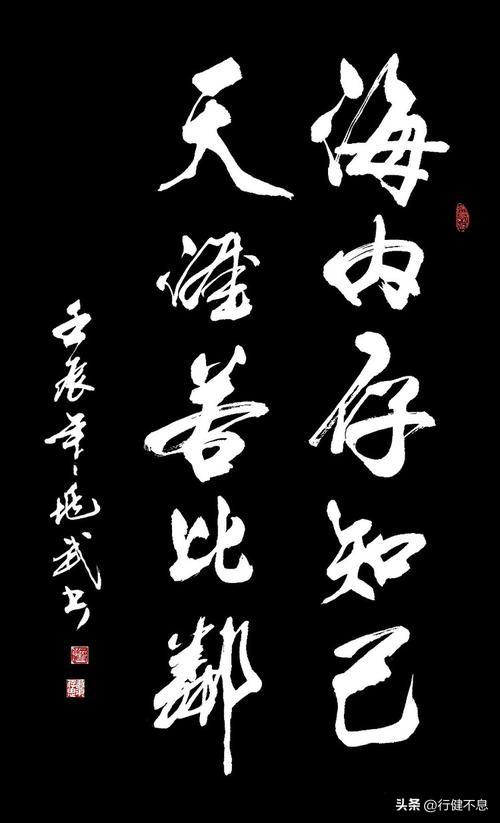 海内存知己
天涯若比鄰
壬辰年武书
头条 @行健不息